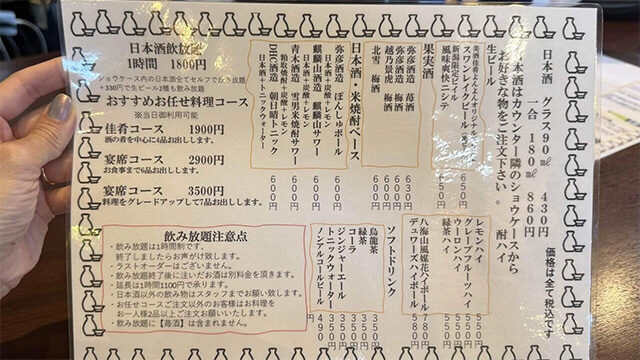 日本酒飲放題
1時間 1800円
ショウケース内の日本酒全てセルフで飲み放題
+330円で生ビール2種も飲み放題
おすすめお任せ料理コース
※当日御利用可能
佳肴コース 1900円
酒の肴を中心に4品お出しします。
宴席コース 2900円
お食事まで6品お出しします。
宴席コース 3500円
料理をグレードアップして7品お出しします。
飲み放題注意点
・飲み放題は1時間制です、
終了しましたらお声がけ致します。
・ラストオーダーはございません。
・飲み放題終了後に注いだお酒は別料金を頂きます。
・延長は1時間1100円で承ります。
・日本酒以外の飲み物はスタッフまでお願い致します。
・お任せコースご注文以外のお客様はお料理を
お一人様2品以上ご注文お願いいたします。
・飲み放題に【苺酒】は含まれません。
日本酒 グラス90㎖ 430円
一合 180㎖ 860円
価格は全て税込です
日本酒はカウンター隣のショウケースから
お好きな物をご注文下さい。
生ビール
新潟限定ビイル
風味爽快ニシテ
果実酒
弥彦酒造 苺酒 630
弥彦酒造 梅酒 600
越乃景虎 梅酒 600
北雪 梅酒 600
日本酒・米焼酎ベース
弥彦酒造 ぽんしゅボール
日本酒+炭酸+レモン
麒麟山酒造 麒麟山サワー
日本酒+炭酸+レモン
青木酒造 雪男米焼酎サワー
粕取焼酎+炭酸+レモン
DHC酒造 朝日晴トニック
日本酒+トニックウォーター
酎ハイ
レモンハイ 500
グレープフルーツハイ 550
ウーロンハイ
緑茶ハイ
八海山風媒花ハイボール
デュワーズハイボール
ソフトドリンク
烏龍茶 350
緑茶 350
コーラ
ジンジャーエール
トニックウォーター
ノンアルコールビール 490